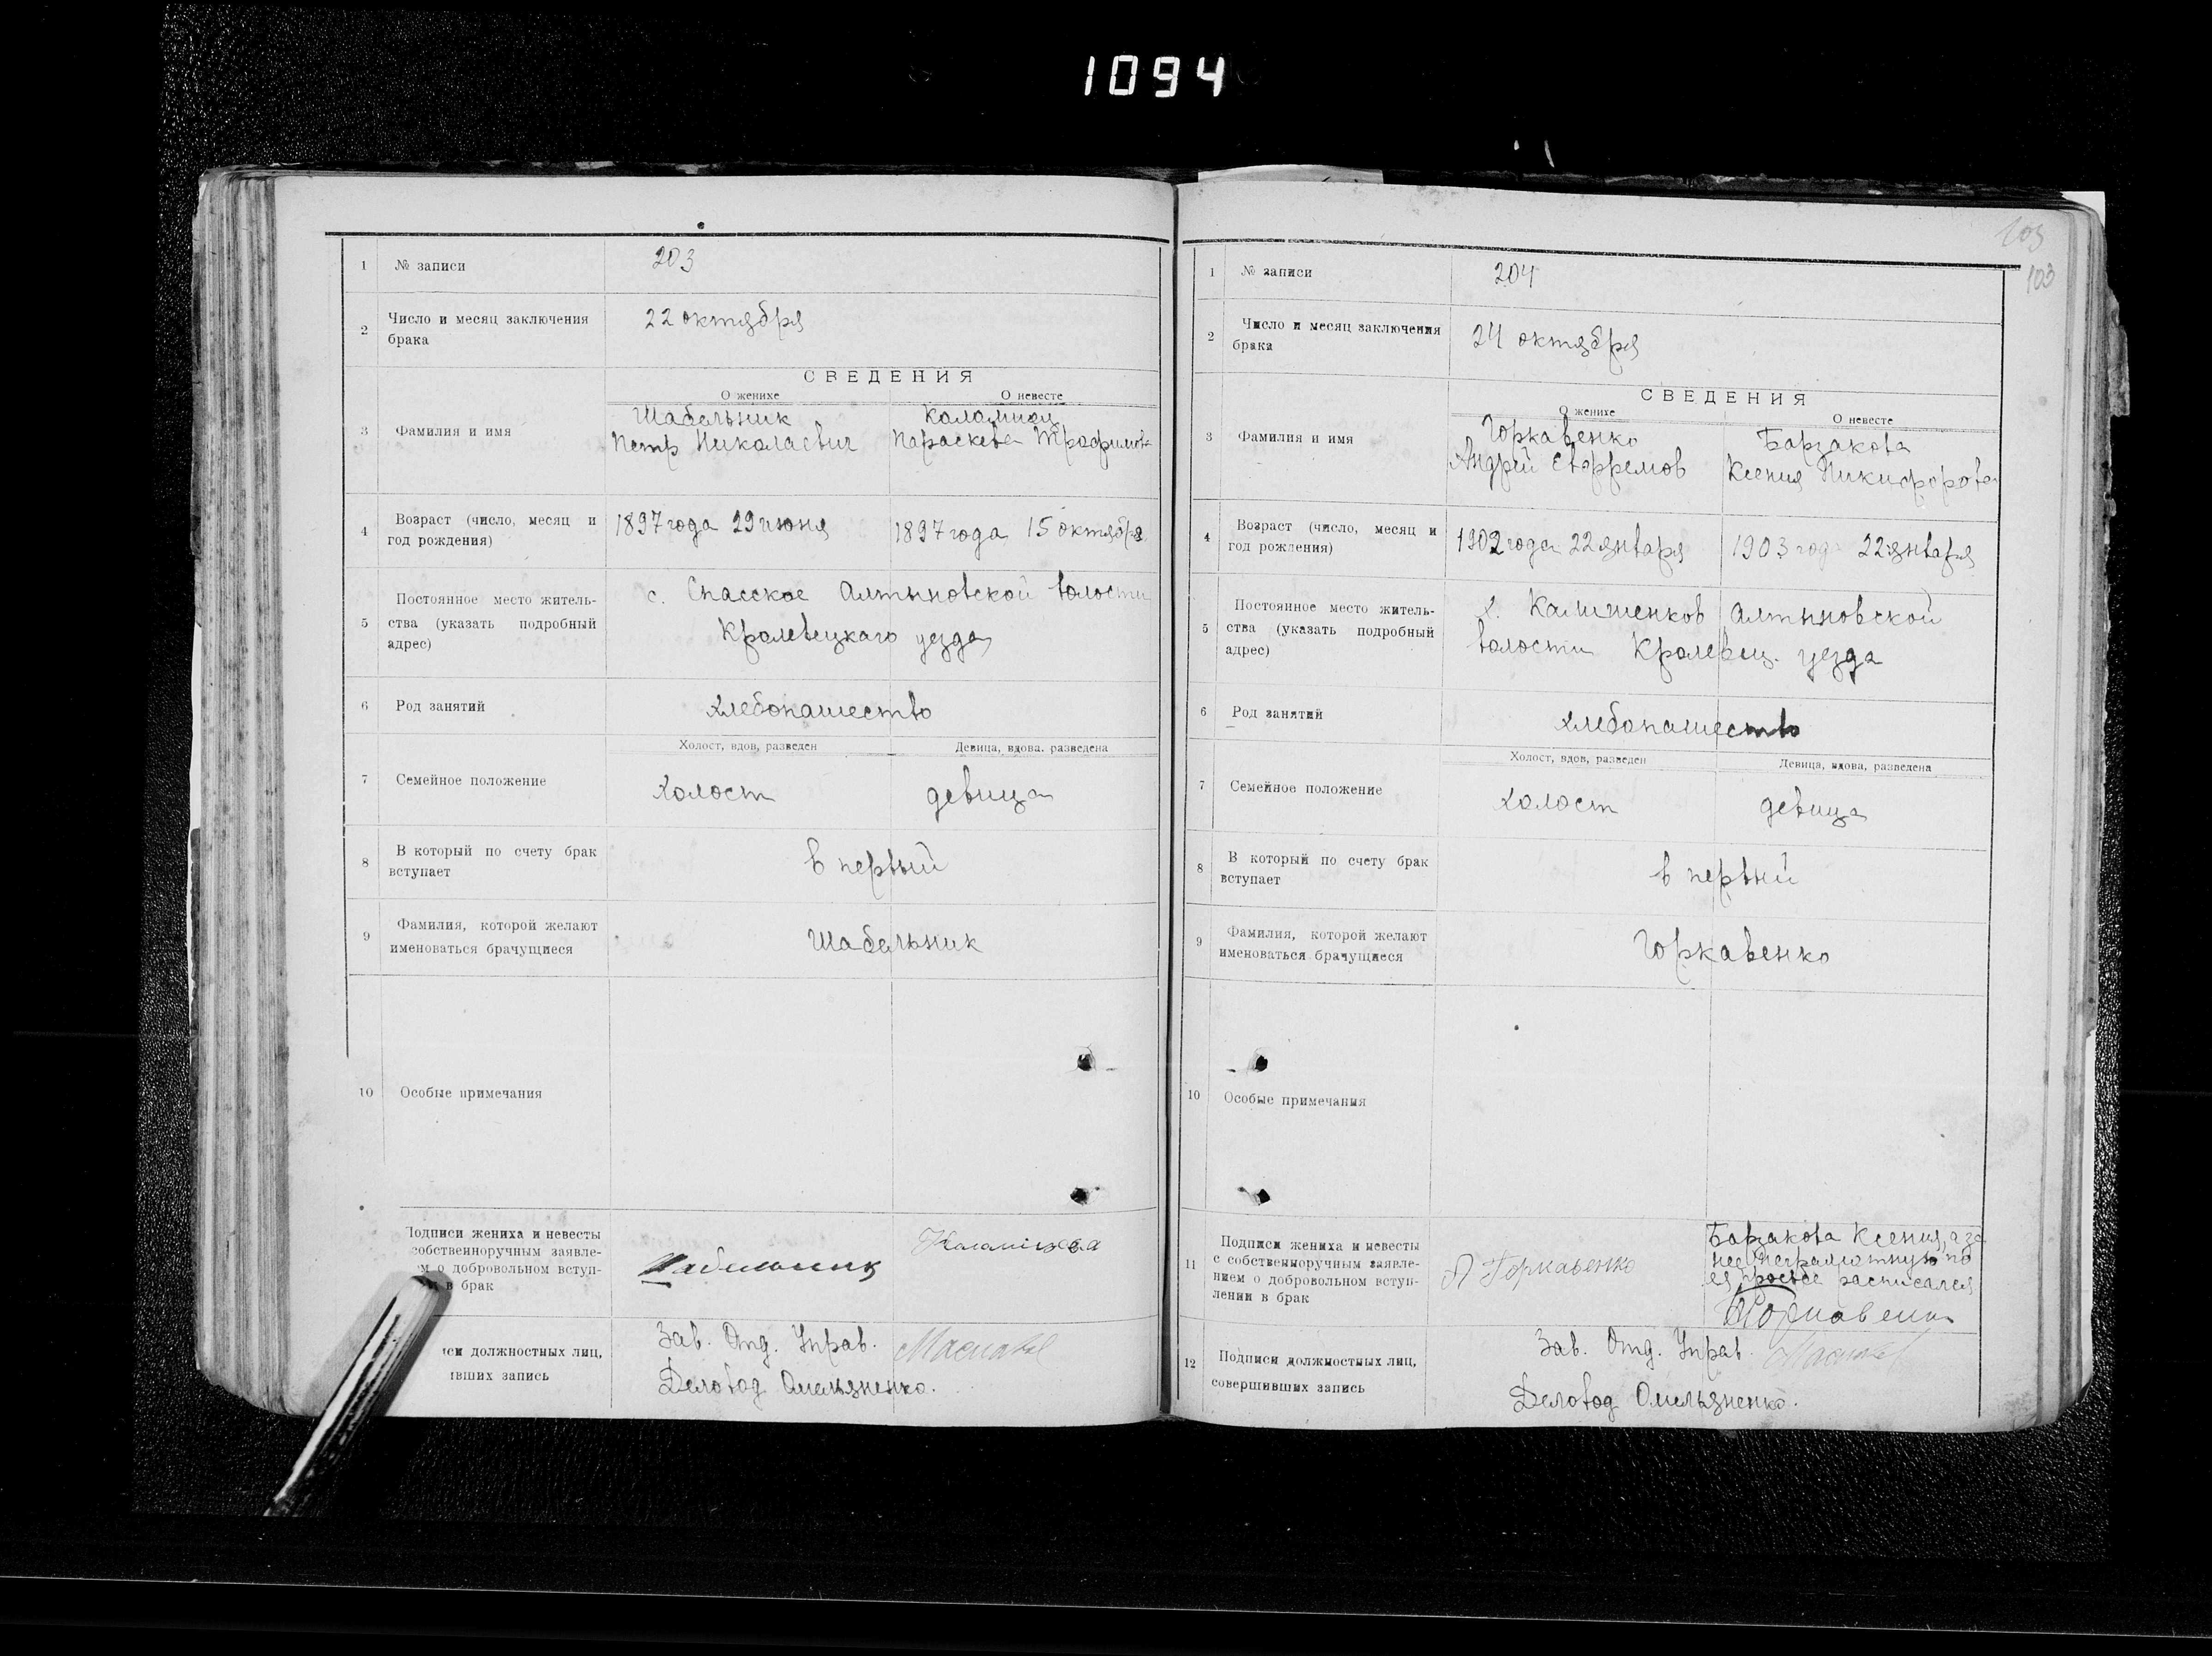 1094
1 № записи 203
2 Число и месяц заключения
брака
22 октября
СВЕДЕНИЯ
О женихе О невесте
3 Фамилия и имя
Шабельник
Петр Николаевич
Параскева Трофимов
4 Возраст (число, месяц и
год рождения)
1897 года 29 июня 1897 года 15 октября
5 Постоянное место житель-
ства (указать подробный
адрес)
с. Спасское Алтыновской волости
Кролевецкаго уезда
6 Род занятий хлебопашество
Холост, вдов, разведен Девица, вдова. разведена
7 Семейное положение холост девица
8 В который по счету брак
вступает
в первый
9 Фамилия, которой желают
именоваться брачущиеся
Шабельник
10 Особые примечания
Подписи жениха и невесты
собственноручным заявле-
о добровольном вступ-
в брак
Шабельник
должностных лиц,
запись
Зав. Отд. Управ.
Деловод Омельяненко.
103
103
1 № записи 204
2 Число и месяц заключения
брака
24 октября
СВЕДЕНИЯ
О женихе О невесте
3 Фамилия и имя
Горкавенко
Андрей Евфремов
Барзакова
Ксения Никифорова
4 Возраст (число, месяц и
год рождения)
1902 года 22 января 1903 год 22 января
5 Постоянное место житель-
ства (указать подробный
адрес)
х. Калишенков Алтыновской
волости Кролевец. уезда
6 Род занятий хлебопашество
Холост, вдов, разведен Девица, вдова, разведена
7 Семейное положение холост девица
8 В который по счету брак
вступает
в первый
9 Фамилия, которой желают
именоваться брачущиеся
Горкавенко
10 Особые примечания
11 Подписи жениха и невесты
с собственноручным заявле-
нием о добровольном вступ-
лении в брак
А Горкавенко
Барзакова Ксения, а за
нее неграмотную по
ея просьбе расписался
12 Подписи должностных лиц,
совершивших запись
Зав. Отд. Управ.
Деловод Омельяненко.